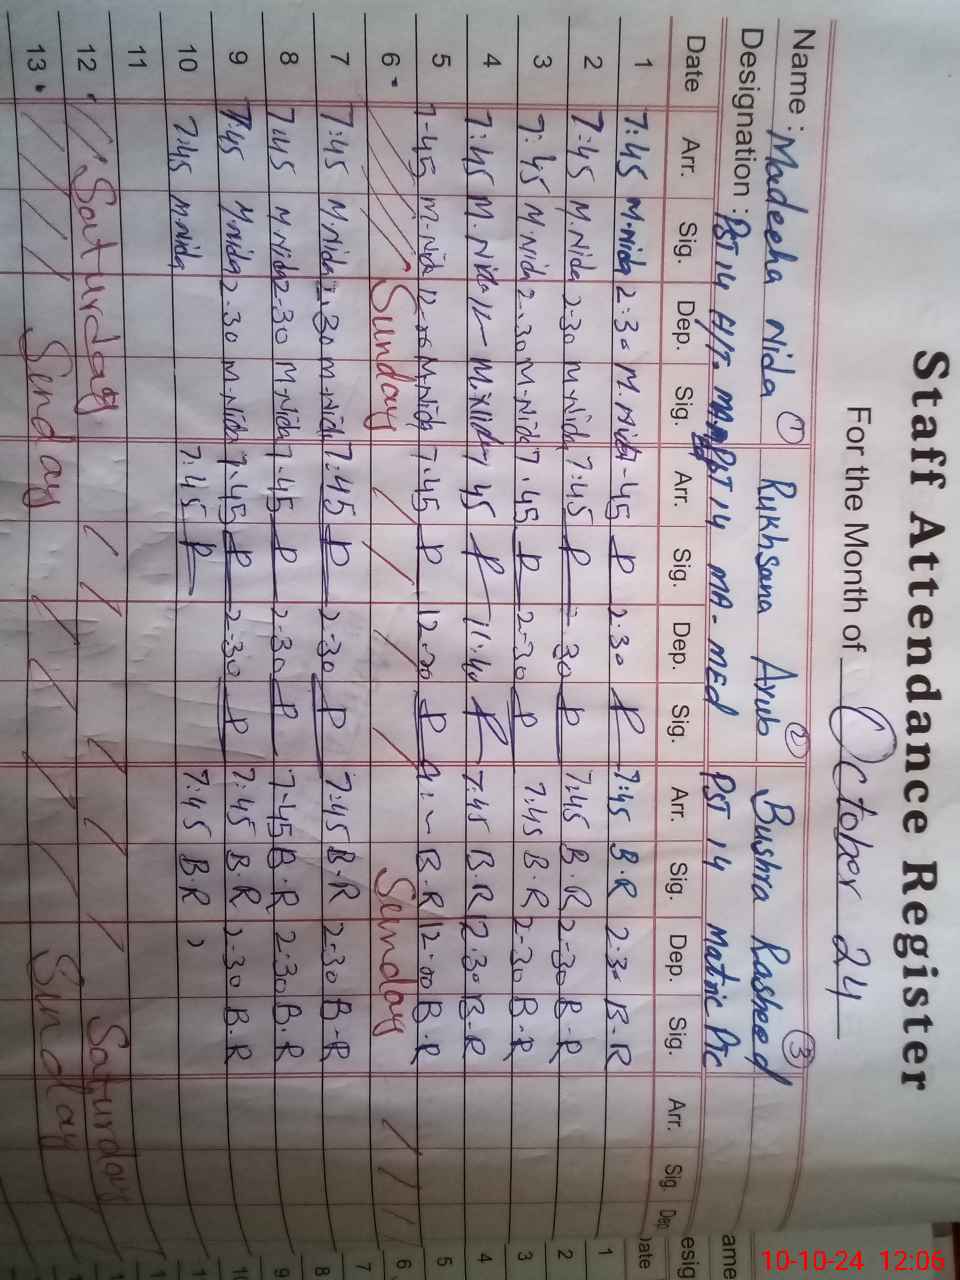 Staff Attendance Register
For the Month of October 24
Name : Madeeha Nida ① Rukhsana Ayub ② Bushra Rasheed ③
Designation : PST 14 H/T. PST 14 MA-MEd PST 14 Matric Ptc
Date Arr. Sig. Dep. Sig. Arr. Sig. Dep. Sig. Arr. Sig. Dep. Sig. Arr. Sig. Dep
1 7:45 M.Nida 2:30 M.Nida 7-45 P 2:30 P 7:45 B.R 2:30 B-R
2 7:45 M.Nida 2-30 M.Nida 7:45 P 2-30 P 7:45 B.R 2-30 B-R
3 7:45 M.Nida 2-30 M-Nida 7.45 P 2-30 P 7:45 B.R 2-30 B-R
4 7:45 M.Nida M.Nida 7 45 P 11:40 P 7:45 B.R 2:30 B-R
5 7-45 M-Nida 12-00 M.Nida 7-45 P 12.00 P B-R 12-00 B-R
6 Sunday Sunday
7 7:45 M.Nida 2-30 M-Nida 7:45 P 2-30 P 7:45 B-R 2-30 B-R
8 7:45 M.Nida 2-30 M-Nida 7-45 P 2-30 P 7-45 B.R 2-30 B.R
9 7:45 M.Nida 2-30 M-Nida 7-45 P 2-30 P 7:45 B.R 2-30 B.R
10 7:45 M.Nida 7:45 P 7:45 B.R
11
12 Saturday Saturday
13 Sunday Sunday
ame
esig
ate
1
2
3
4
5
6
7
8
9
10-10-24 12:06